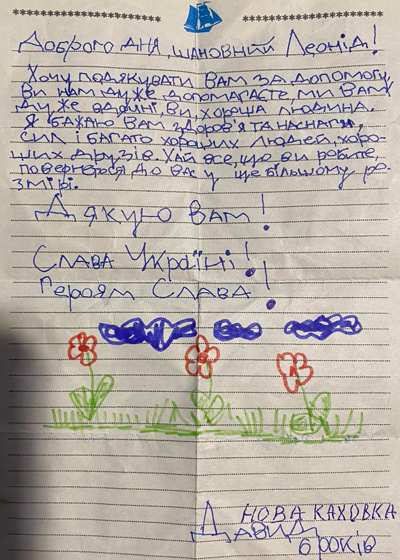 Доброго дня, шановний Леонід!
Хочу подякувати вам за допомогу,
ви нам дуже допомагаєте, ми вам
дуже вдячні, ви, хороша людина.
Я бажаю вам здоров'я та наснаги,
сил і багато хороших людей, хоро-
ших друзів. Хай все, що ви робите,
повернеться до вас у ще більшому ро-
змірі.
Дякую вам!
Слава Україні!
Героям Слава!
Нова Каховка
Давид
6 років